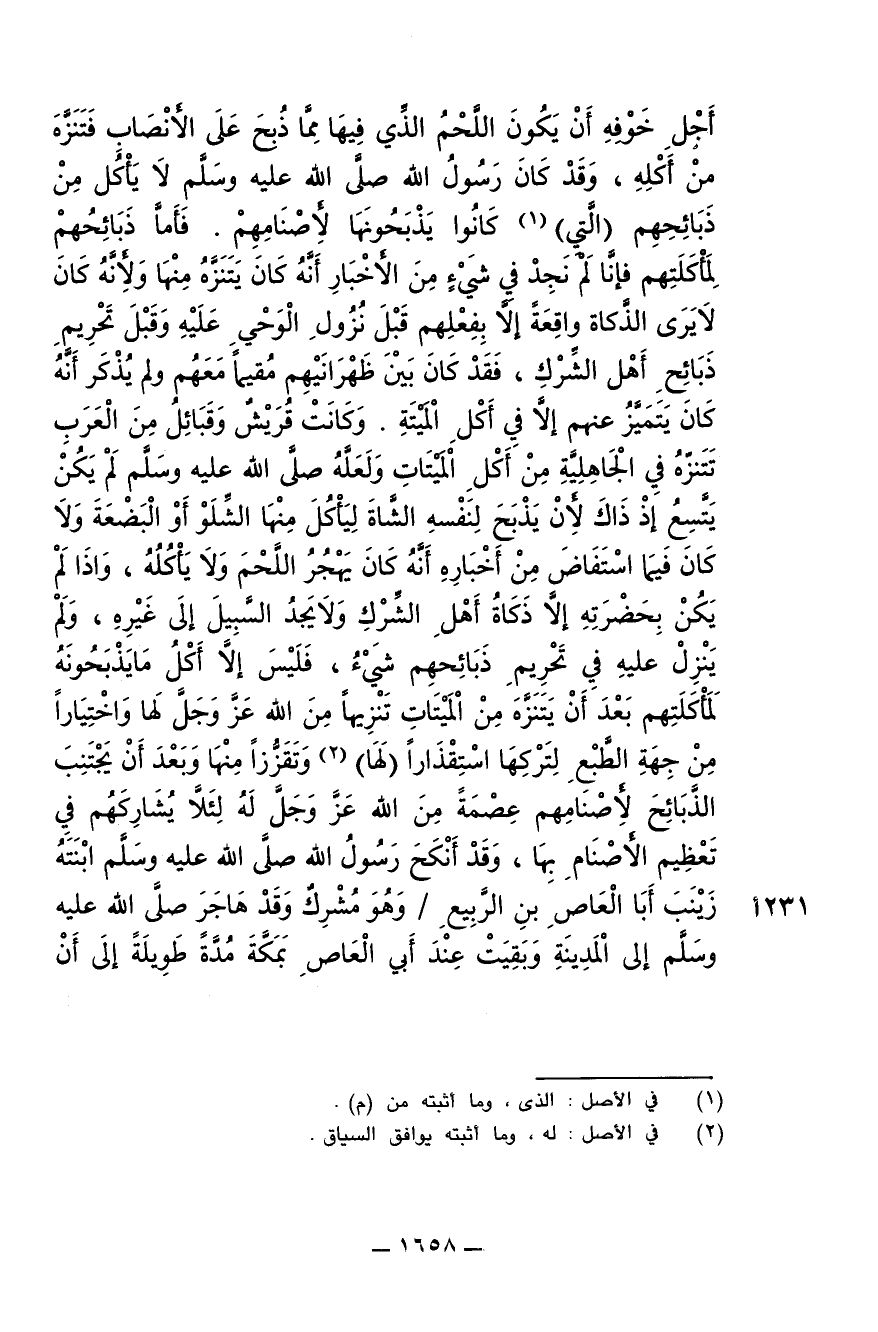 أَجْلِ خَوْفِهِ أَنْ يَكُونَ اللَّحْمُ الذِّي فِيهَا مِمَّا ذُبِحَ عَلَى الأَنْصَابِ فَتَنَزَّهَ
منْ أَكْلِهِ ، وَقَدْ كَانَ رَسُولُ الله صلَّى الله عليه وسَلَّم لَا يَأْكُل مِنْ
ذَبَائِحِهِم (الَّتِي) (١) كَانُوا يَذْبَحُونَهَا لِأَصْنَامِهِمْ . فَأَماَّ ذَبَائِحُهمْ
لِمَأْكَلَتِهِم فإنَّا لَمْ نَجِدْ في شَيْءٍ مِنَ الأَخْبَارِ أَنَّهُ كَانَ يَتَنَزَّهُ مِنْهَا وَلِأَنَّهُ كَانَ
لَا يَرَى الذَّكاة واقِعَةً إلَّا بِفِعْلِهم قَبْلَ نُزُولِ الْوَحْيِ عَلَيْهِ وَقَبْلَ تَحْرِيمِ
ذَبَائِحِ أَهْلِ الشِّرْكِ ، فَقَدْ كَانَ بَيْنَ ظَهْرَانَيْهِم مُقيماً مَعَهُم ولم يُذْكَر أَنَّهُ
كَانَ يَتَمَيَّزُ عنهم إلَّا فِي أَكْلِ الْمَيْتَةِ . وَكَانَتْ قُرَيْشٌ وَقَبَائِلُ مِنَ الْعَرَبِ
تَتَنزّهُ فِي الْجَاهِلِيَّةِ مِنْ أَكْلِ الْمَيْتَاتِ وَلَعَلَّهُ صلَّى الله عليه وسَلَّم لَمْ يَكُنْ
يَتَّسِعُ إذْ ذَاكَ لِأَنْ يَذْبَحَ لِنَفْسهِ الشَّاةَ لِيَأْكُلَ مِنْهَا الشِّلَوْ أَوْ الْبَضْعَةَ وَلَا
كَانَ فَيَما اسْتَفَاضَ مِنْ أَخْبَارِهِ أَنَّهُ كَانَ يَهْجُرُ اللَّحْمَ وَلَا يَأْكُلُهُ ، وَاذَا لَمْ
يَكُنْ بِحَضْرَتِهِ إلاَّ ذَكَاةُ أَهْلِ الشِّرْكِ وَلَايَجدُ السَّبِيلَ إلَى غَيْرِهِ ، وَلَمْ
يَنْزِلْ عليهِ فِي تَحْرِيمِ ذَبَائِحهِم شَيْءُ ، فَلَيْسَ إلاَّ أَكْلُ مَايَذْبَحُونَهُ
لَمَأْكَلَتِهم بَعْدَ أَنْ يَتَنَزَّهَ مِنْ الْمَيْتَاتِ تَنْزِيهاً مِنَ الله عَزَّ وَجَلَّ لَها وَاخْتِيَاراً
مِنْ جِهَةِ الطَّبْعِ لِتَرْكِهَا اسْتِقْذَاراً (لَهَا) (٢) وَتَقَزُّزاً مِنْهَا وَبَعْدَ أَنْ يَجْتَنِبَ
الذَّبَائِحَ لِأَصْنَامِهم عِصْمَةً مِنَ الله عَزَّ وَجَلَّ لَهُ لِئَلاَّ يُشَارِكَهُم فِي
تَعْظِيمِ الأَصْنَامِ بِهَا ، وَقَدْ أَنْكَحَ رَسُولُ الله صلَّى الله عليه وسَلَّم ابْنَتَهُ
زَيْنَبَ أَبَا الْعَاصِ بنِ الرَّبِيعِ / وَهُوَ مُشْرِكٌ وَقَدْ هَاجَرَ صلَّى الله عليه ٢٣١أ
وسَلَّم إلى الْمَدِينَةِ وَبَقِيَتْ عِنْدَ أَبي الْعَاصِ بَمَكَّةَ مُدَّةً طَوِيلَةً إلَى أَنْ
(١) في الأصل : الذى ، وما أثبته من (م) .
(٢) في الأصل : له ، وما أثبته يوافق السياق .
– ١٦٥٨ –